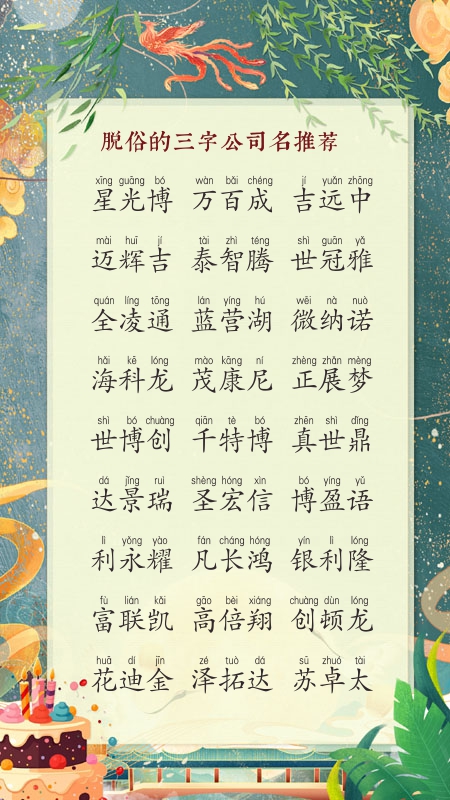 脱俗的三字公司名推荐
xīng guāng bó wàn bǎi chéng jí yuǎn zhōng
星光博 万百成 吉远中
mài huī jí tài zhì téng shì guān yǎ
迈辉吉 泰智腾 世冠雅
quán líng tōng lán yíng hú wēi nà nuò
全凌通 蓝营湖 微纳诺
hǎi kē lóng mào kāng ní zhèng zhǎn mèng
海科龙 茂康尼 正展梦
shì bó chuàng qiān tè bó zhēn shì dǐng
世博创 千特博 真世鼎
dá jǐng ruì shèng hóng xìn bó yíng yǔ
达景瑞 圣宏信 博盈语
lì yǒng yào fán cháng hóng yín lì lóng
利永耀 凡长鸿 银利隆
fù lián kǎi gāo bèi xiáng chuàng dùn lóng
富联凯 高倍翔 创顿龙
huā dí jīn zé tuò dá sū zhuó tài
花迪金 泽拓达 苏卓太